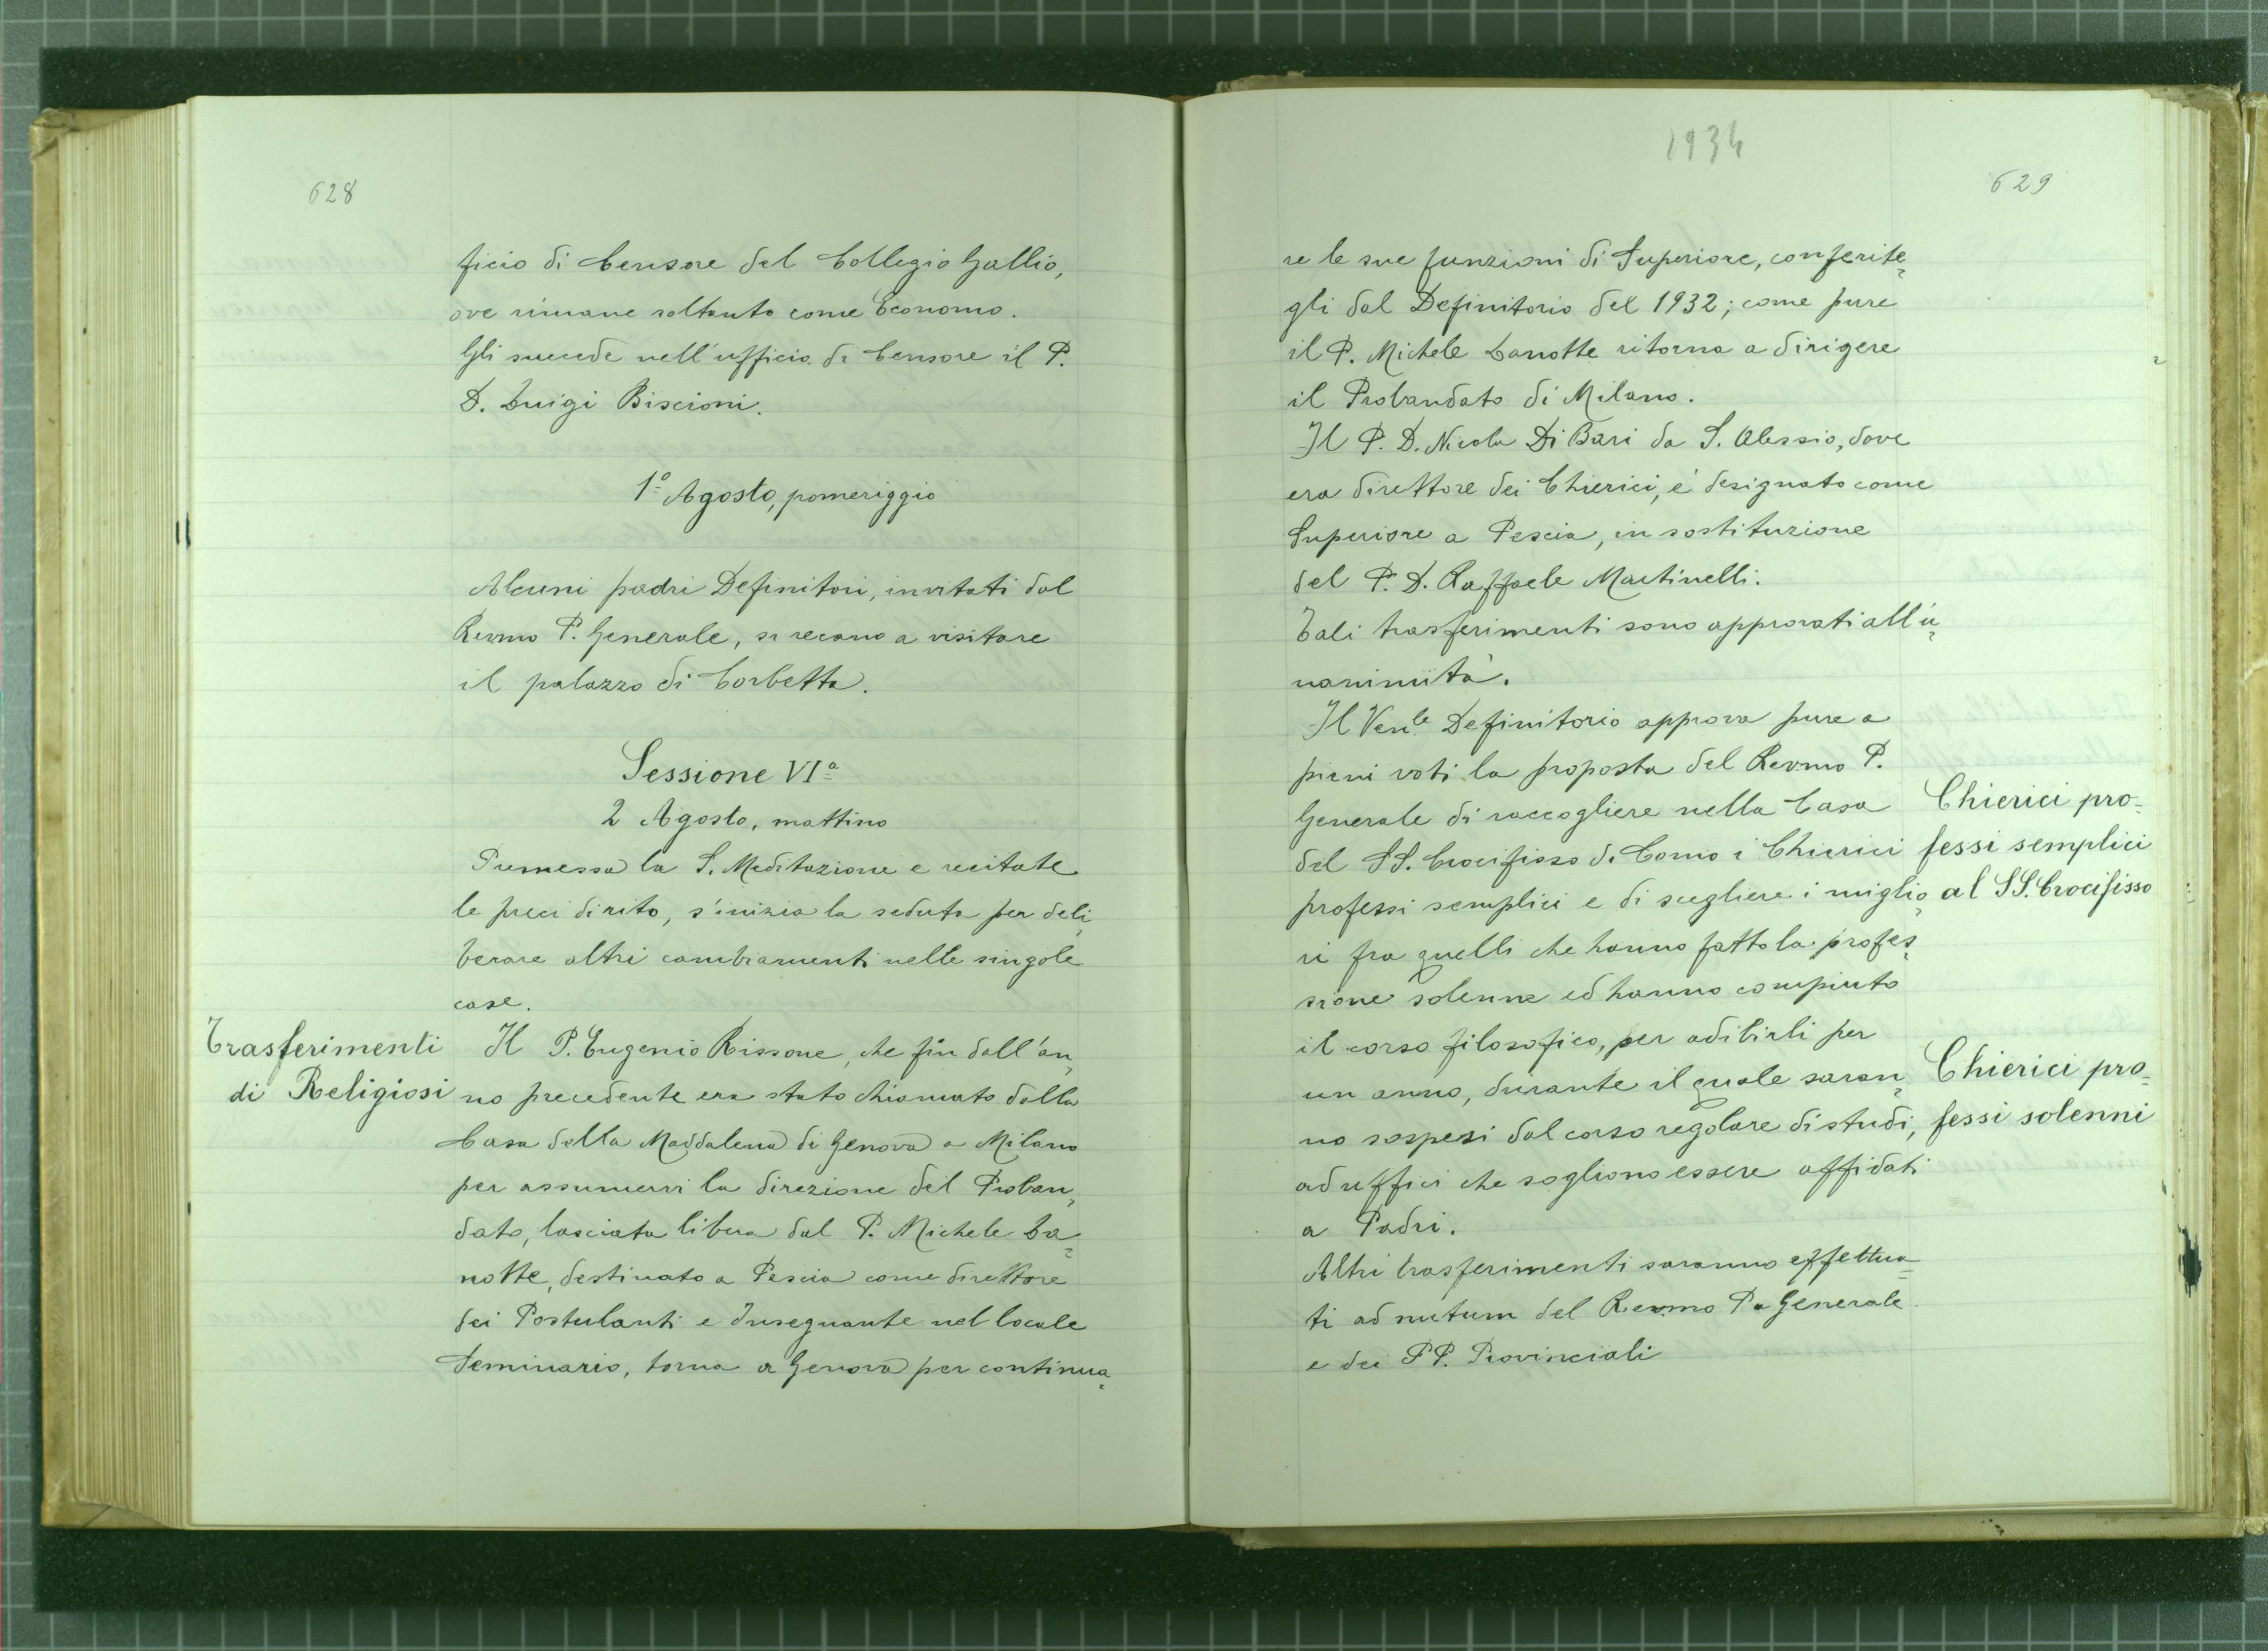 628
ficio di Censore del Collegio Gallio,
ove rimane soltanto come Economo.
Gli succede nell'ufficio di Censore il P.
D. Luigi Biscioni.
1º Agosto, pomeriggio
Alcuni padri Definitori, invitati dal
Revmo P. Generale, si recano a visitare
il palazzo di Corbetta.
Sessione VIª
2 Agosto, mattino
Premessa la S. Meditazione e recitate
le preci di rito, s'inizia la seduta per deli-
berare altri cambiamenti nelle singole
case.
Trasferimenti
di Religiosi
Il P. Eugenio Rissone, che fin dall'an-
no precedente era stato chiamato dalla
Casa della Maddalena di Genova a Milano
per assumervi la direzione del Proban-
dato, lasciata libera dal P. Michele La-
notte, destinato a Pescia come direttore
dei Postulanti e Insegnante nel locale
Seminario, torna a Genova per continua-
1934
629
re le sue funzioni di Superiore, conferite-
gli dal Definitorio del 1932; come pure
il P. Michele Lanotte ritorna a dirigere
il Probandato di Milano.
Il P. D. Nicola Di Bari da S. Alessio, dove
era direttore dei Chierici, è designato come
Superiore a Pescia, in sostituzione
del P. D. Raffaele Martinelli.
Tali trasferimenti sono approvati all'u-
nanimità.
Il Venle Definitorio approva pure a
pieni voti la proposta del Revmo P.
Generale di raccogliere nella Casa
del SS. Crocifisso di Como i Chierici
professi semplici e di scegliere i miglio-
ri fra quelli che hanno fatto la profes-
sione solenne ed hanno compiuto
il corso filosofico, per adibirli per
un anno, durante il quale saran-
no sospesi dal corso regolare di studi,
ad uffici che sogliono essere affidati
a Padri.
Altri trasferimenti saranno effettua-
ti ad nutum del Revmo P. Generale
e dei PP. Provinciali
Chierici pro-
fessi semplici
al SS. Crocifisso
Chierici pro-
fessi solenni